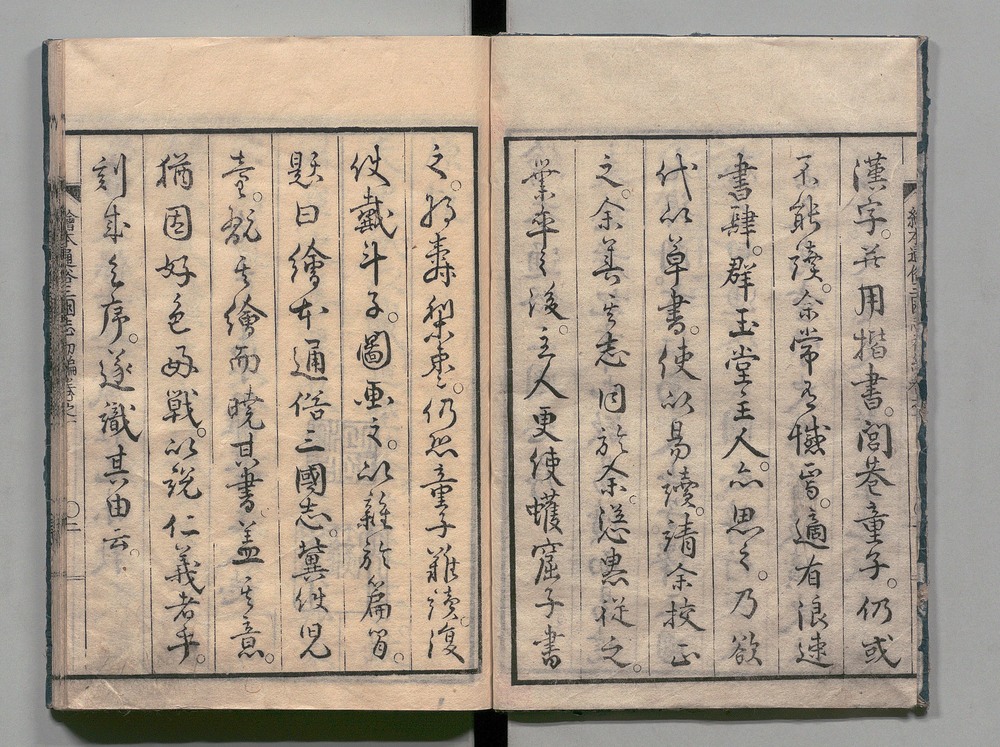 漢字。并用楷書。閭巷童子。仍或
不能讀。余常有憾焉。適有浪速
書肆。群玉堂主人。亦思之。乃欲
代以草書。使以易讀。請余挍正
之。余善其志因於余。慫慂従之。
業卒之後。主人更使蠖窟子書
之。將壽梨棗。仍恐童子難讀。復
使戴斗子。圖画之。以雜於篇間。
題曰繪本通俗三國志。冀使児
童。観其繪而暁其書。盖其意。
猶因好色好戦。以説仁義者乎。
刻成乞序。遂識其由云。
繪本通俗三國志初編巻之一
〇二